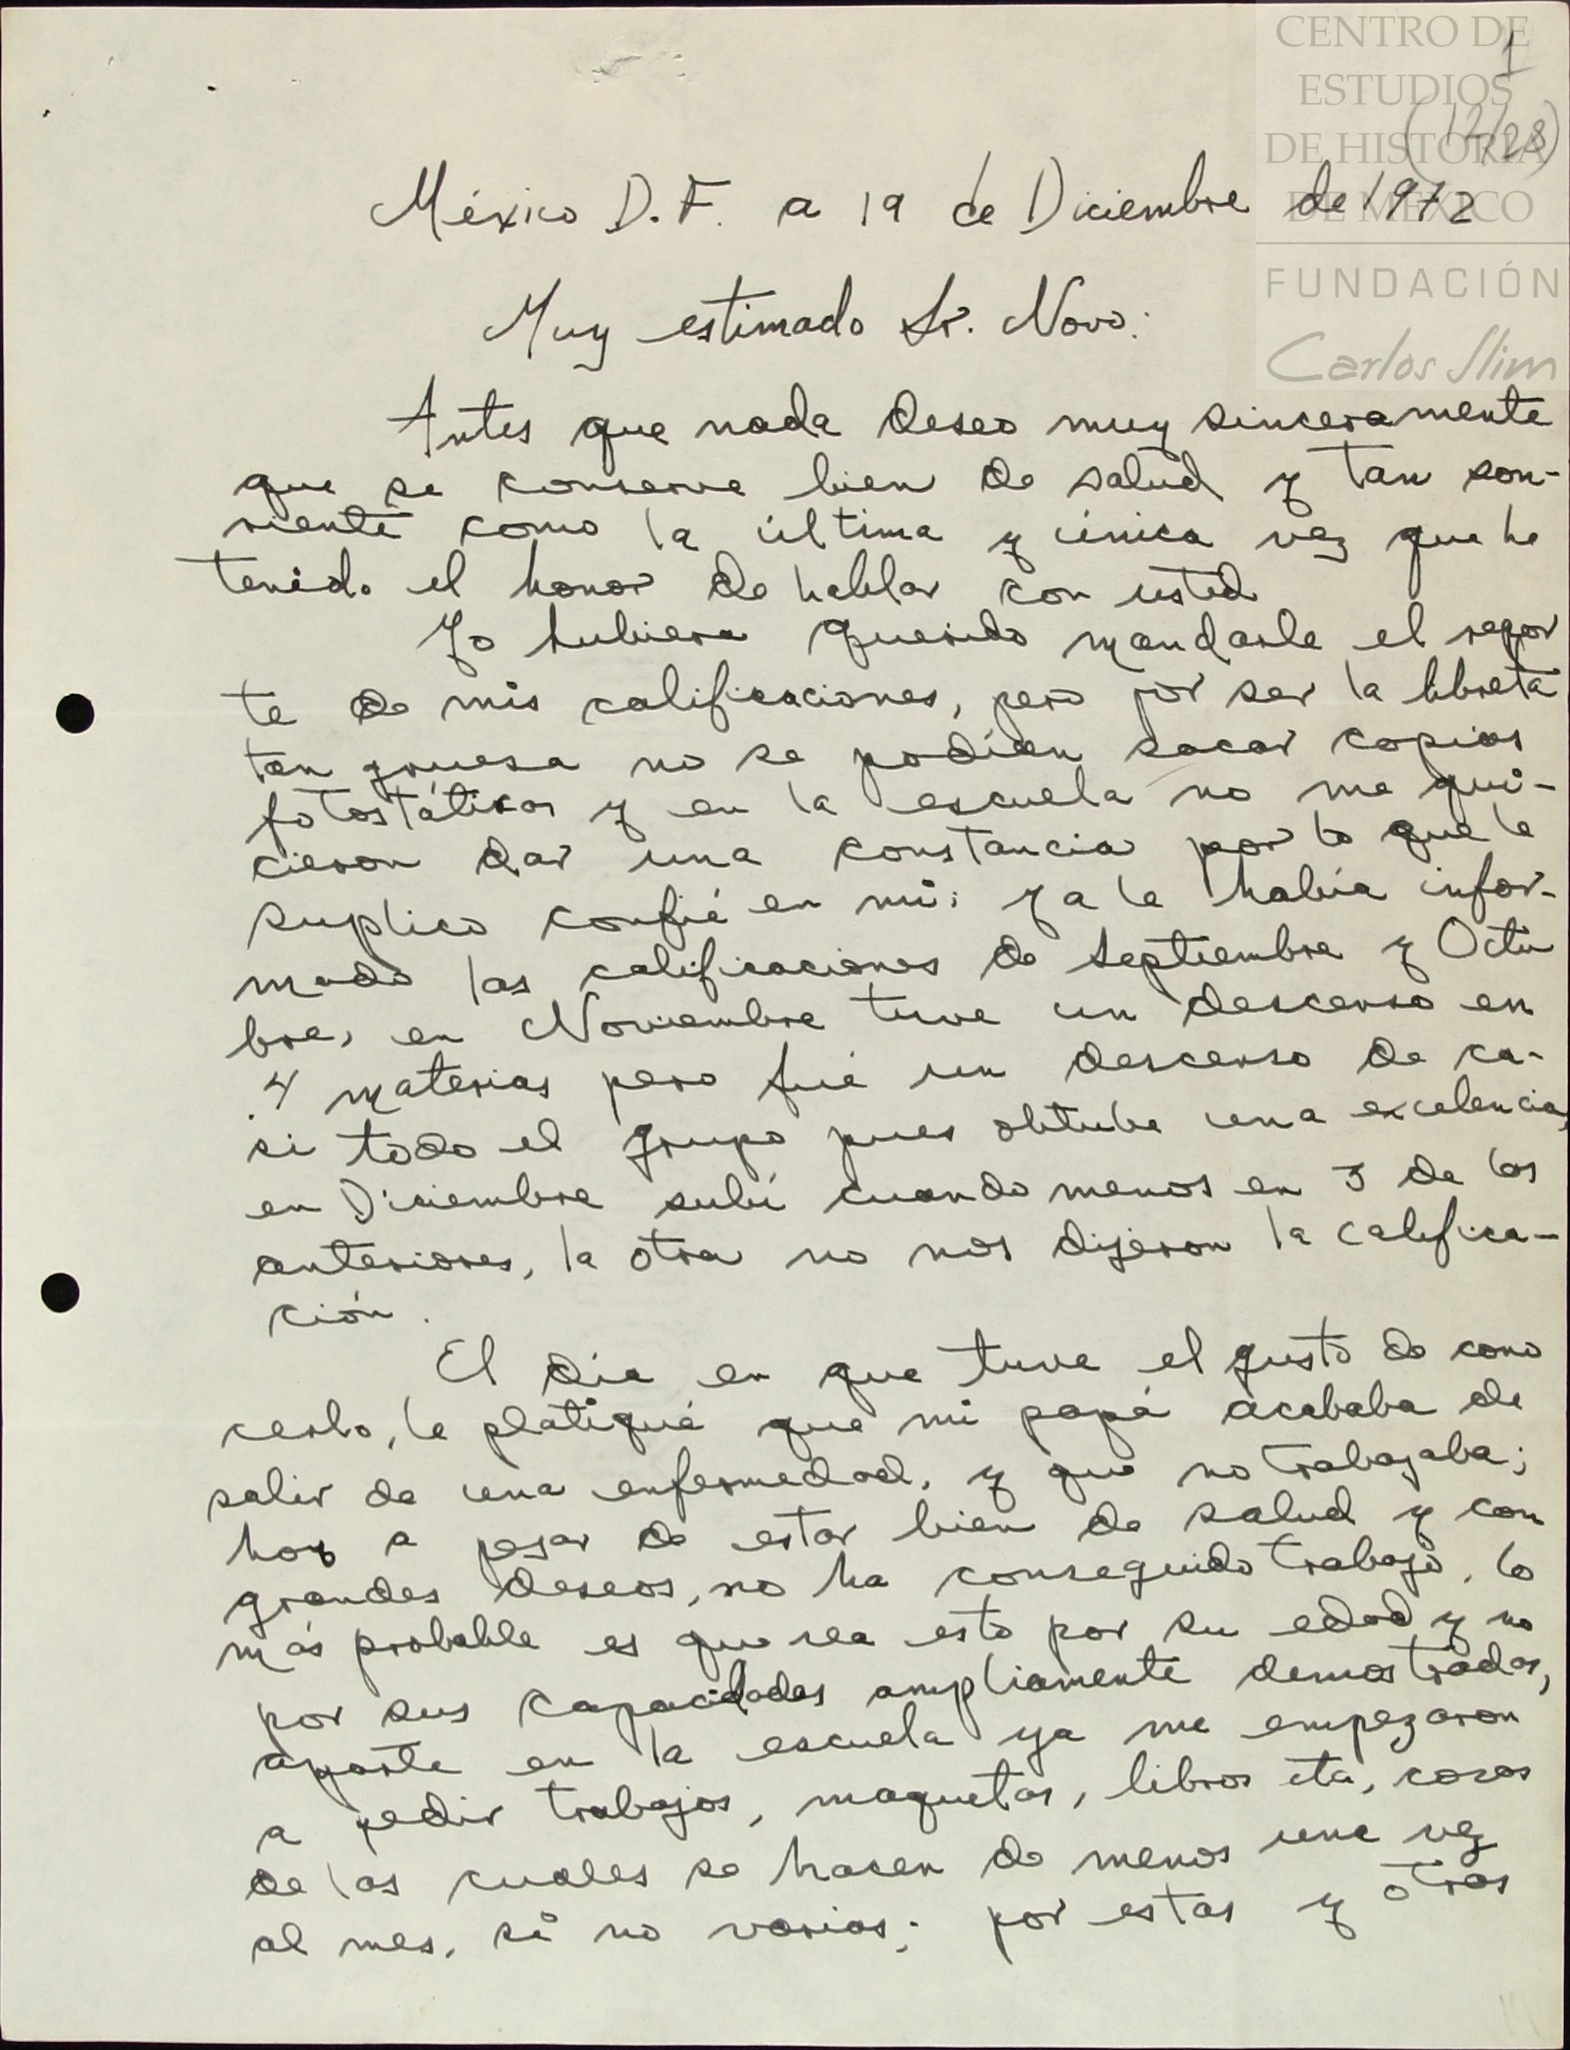 CENTRO DE
ESTUDIOS
DE HISTORIA
DE MÉXICO
FUNDACIÓN
Carlos Slim
1
(12/28)
México D.F. a 19 de Diciembre de 1972
Muy estimado Sr. Novo:
Antes que nada deseo muy sinceramente
que se conserve bien de salud y tan son-
riente como la última y única vez que he
tenido el honor de hablar con usted
Yo hubiera querido mandarle el repor
te de mis calificaciones, pero por ser la libreta
tan gruesa no se podían sacar copias
fotostáticas y en la escuela no me qui-
cieron dar una constancia por lo que le
suplico confié en mí; ya le había infor-
mado las calificaciones de Septiembre y Octu
bre, en Noviembre tuve un descenso en
4 materias pero fué un descenso de ca-
si todo el grupo pues obtube una excelencia,
en Diciembre subí cuando menos en 3 de las
anteriores, la otra no nos dijeron la califica-
ción.
El día en que tuve el gusto de cono
cerlo, le platiqué que mi papá acababa de
salir de una enfermedad, y que no trabajaba;
hoy a pesar de estar bien de salud y con
grandes deseos, no ha conseguido trabajo, lo
más probable es que sea esto por su edad y no
por sus capacidades ampliamente demostradas,
aparte en la escuela ya me empezaron
a pedir trabajos, maquetas, libros etc, cosas
de las cuales se hacen de menos una vez
al mes, si no varias; por estas y otras